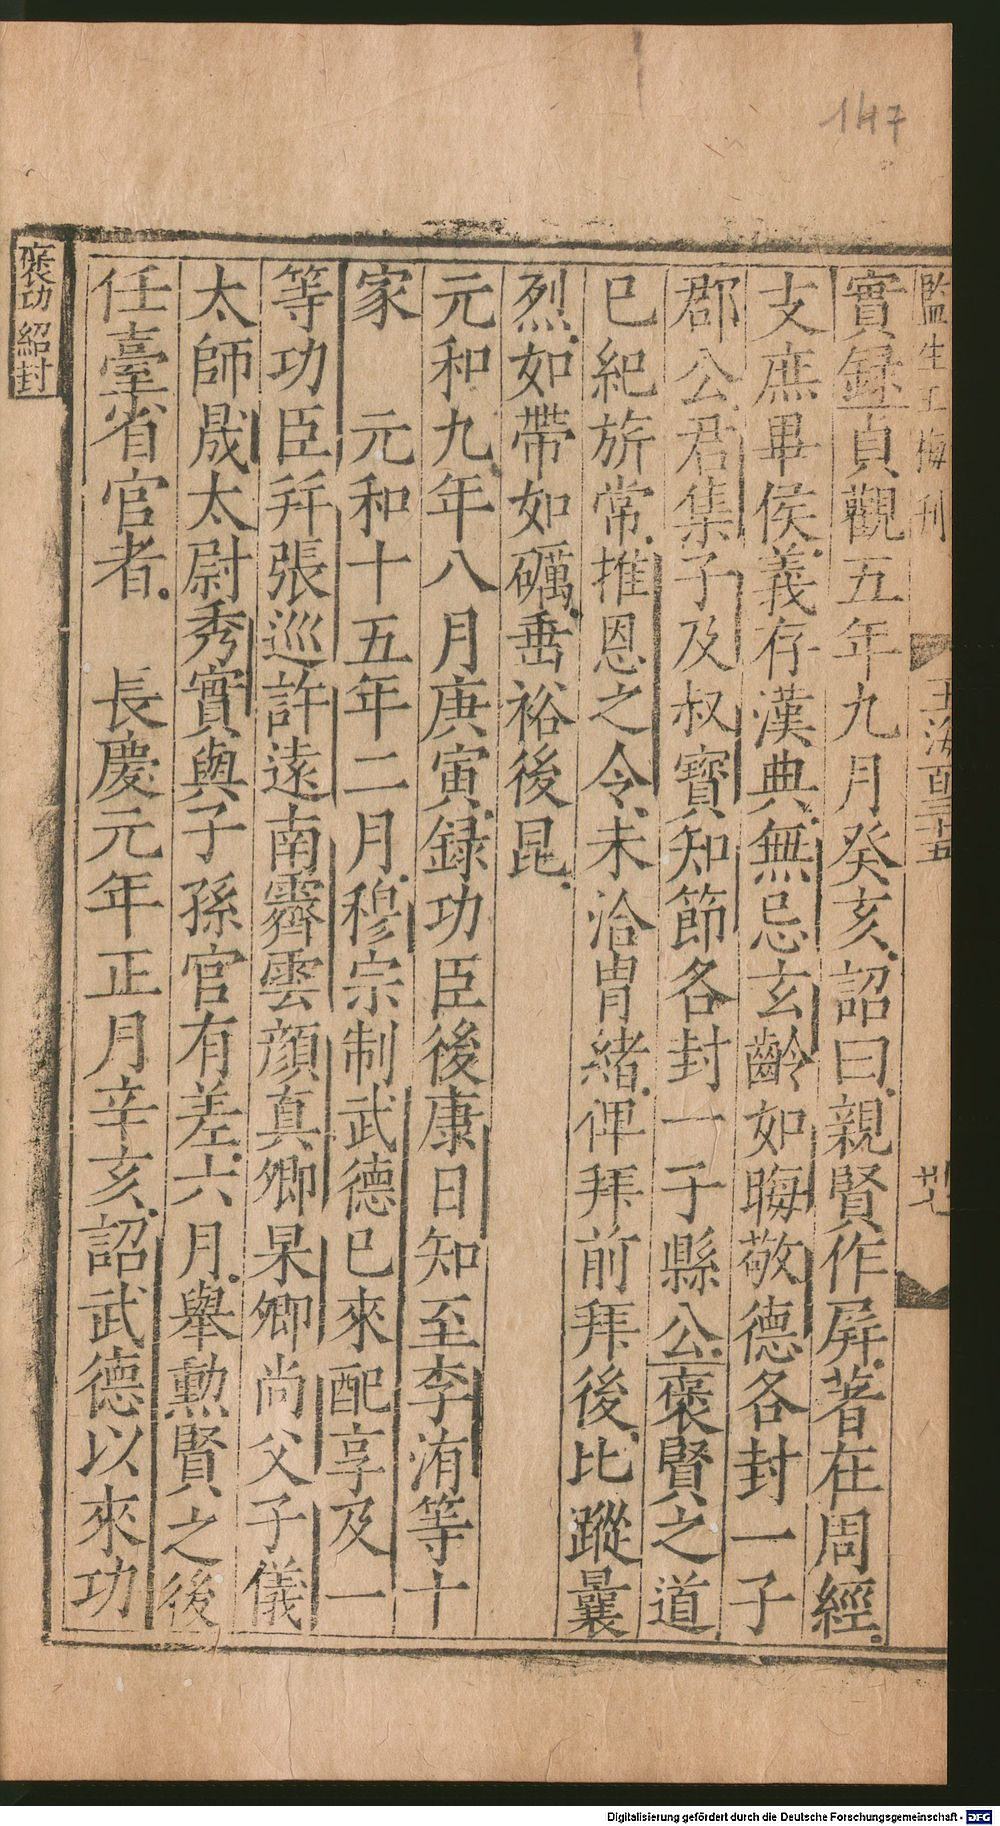 147
監生王梅刊
玉海百三十五
廿七
實録貞觀五年九月癸亥詔曰親賢作屏著在周經
支庶畢侯義存漢典無忌玄齡如晦敬德各封一子
郡公君集子及叔寳知節各封一子縣公褒賢之道
已紀旂常推恩之令未洽胄緒俾拜前拜後比蹤曩
烈如帶如礪垂裕後昆
元和九年八月庚寅録功臣後康日知至李洧等十
家　元和十五年二月穆宗制武德已來配享及一
等功臣并張巡許遠南霽雲顔真卿杲卿尚父子儀
太師晟太尉秀實與子孫官有差六月舉勲賢之後
任臺省官者　長慶元年正月辛亥詔武德以來功
褒功紹封
Digitalisierung gefördert durch die Deutsche Forschungsgemeinschaft - DFG